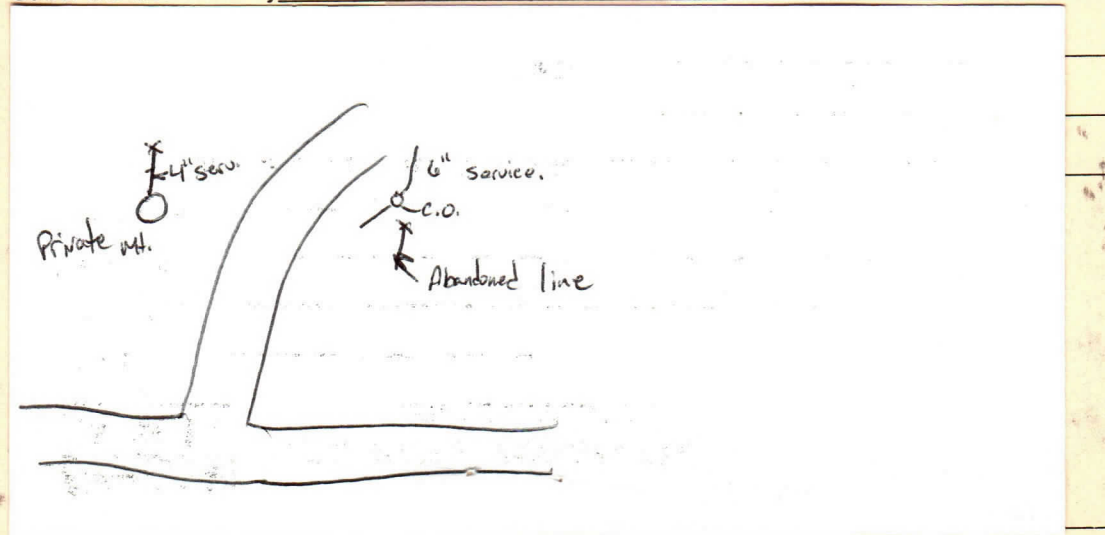 4" serv.
Private MH.
6" service.
C.O.
Abandoned line